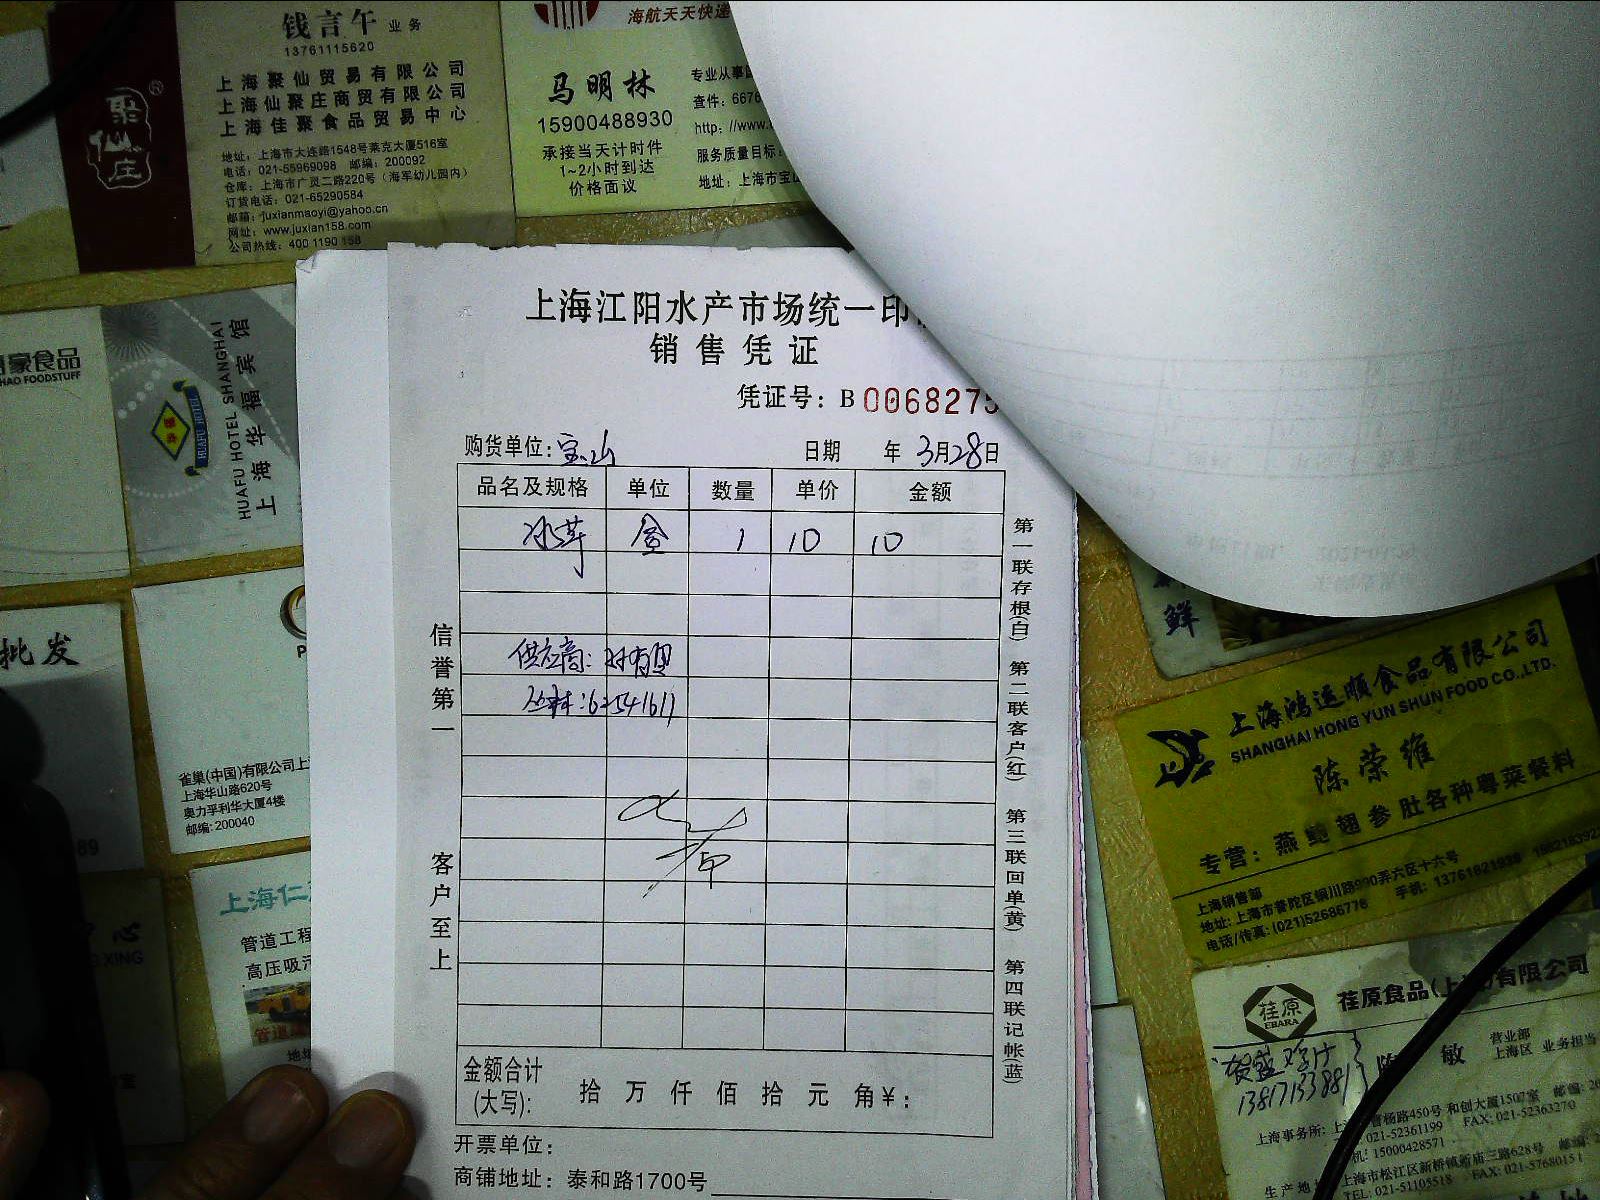 钱言午 业务
13761115620
上海聚仙贸易有限公司
上海仙聚庄商贸有限公司
上海佳聚食品贸易中心
地址：上海市大连路1548号莱克大厦516室
电话：021-55969098 邮编：200092
仓库：上海市广灵二路220号（海军幼儿园内）
订货电话：021-65290584
邮箱：juxianmaoyi@yahoo.cn
网址：www.juxian158.com
公司热线：400 1190 158
聚仙庄®
海航天天快递
马明林
15900488930
承接当天计时件
1~2小时到达
价格面议
专业从事
查件：6676
http://www.
服务质量目标：
地址：上海市宝山
豪食品
HAO FOODSTUFF
HUAFU HOTEL
HUAFU HOTEL SHANGHAI
上海华福宾馆
批发
89
雀巢(中国)有限公司上
上海华山路620号
奥力孚利华大厦4楼
邮编：200040
上海仁
管道工程
高压吸污
管道
心
XING
室
上海江阳水产市场统一印
销售凭证
凭证号：B 0068275
购货单位：宝山 日期 年 3月28日
品名及规格 单位 数量 单价 金额
冰芽 盒 1 10 10
供应商：
62541611
信誉第一 客户至上
第一联存根(白) 第二联客户(红) 第三联回单(黄) 第四联记帐(蓝)
金额合计
(大写)： 拾 万 仟 佰 拾 元 角 ¥：
开票单位：
商铺地址：泰和路1700号
鲜
上海鸿运顺食品有限公司
SHANGHAI HONG YUN SHUN FOOD CO.,LTD.
陈荣维
专营：燕鲍翅参肚各种粤菜餐料
上海销售部
地址：上海市普陀区铜川路990弄六区十六号
电话/传真：(021)52686778 手机：13761821938
荏原
EBARA
荏原食品(上 )有限公司
陈 敏
营业部
上海区 业务担当
13817133881
上海事务所：上 曹杨路450号 和创大厦1507室 邮编：20
021-52361199 FAX：021-52363270
机：15000428571
生产地 上海市松江区新桥镇新庙三路628号 邮编
TEL：021-51105518 FAX：021-5768015